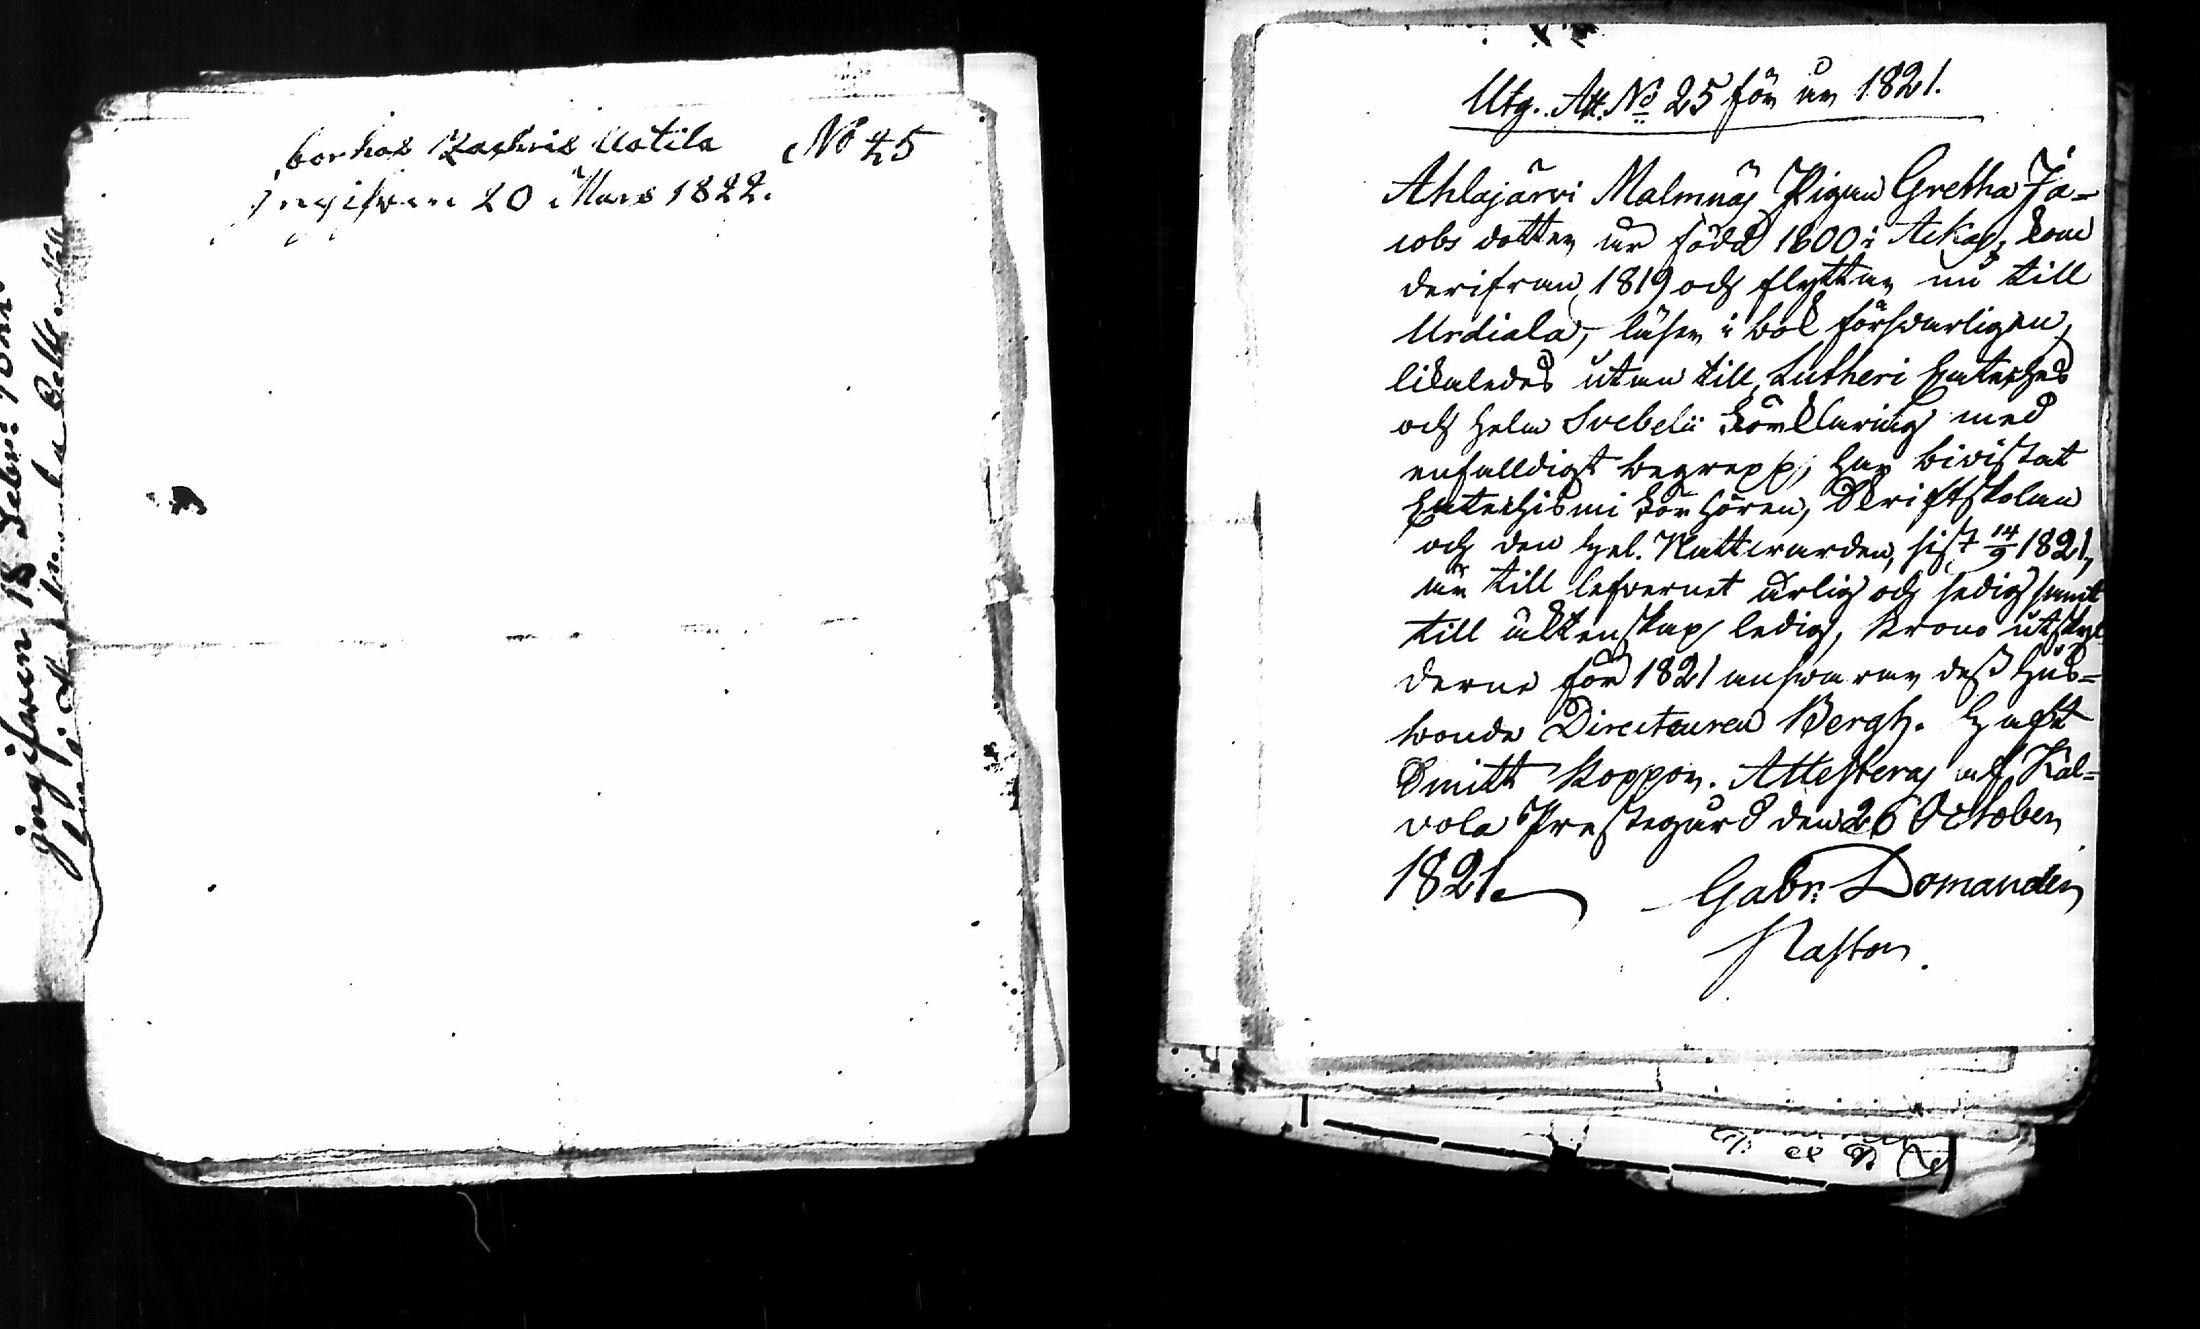 bor hos Zachris Uotila No 25
Ingifven 20 Mars 1822.
ingifven 18 Febr:
Utg. Att. No 25 för år 1821.
Ahlajärvi Malmnäs Pigan Gretha Ja-
cobs dotter är född 1800 i Ackas, kom
derifran 1819 och flyttar nu till
Urdiala, läser i bok försvarligen,
likaledes utan till Lutheri Cateches
och hela Svebelii förklaring med
enfalldigt begrepp, har bivistat
Catechismi förhören, Skriftskolan
och den Hel. Nattvarden, sist 14/9 1821,
är till lefvernet ärlig och sedig samt
till äktenskap ledig, Krono utskyl-
derne för 1821 ansvarar dess Hus-
bonde Directeuren Bergh. Haft
Smitt koppor. Attesteras af Kal-
vola Prestegård den 26 October
1821. Gabr. Domander
Pastor.